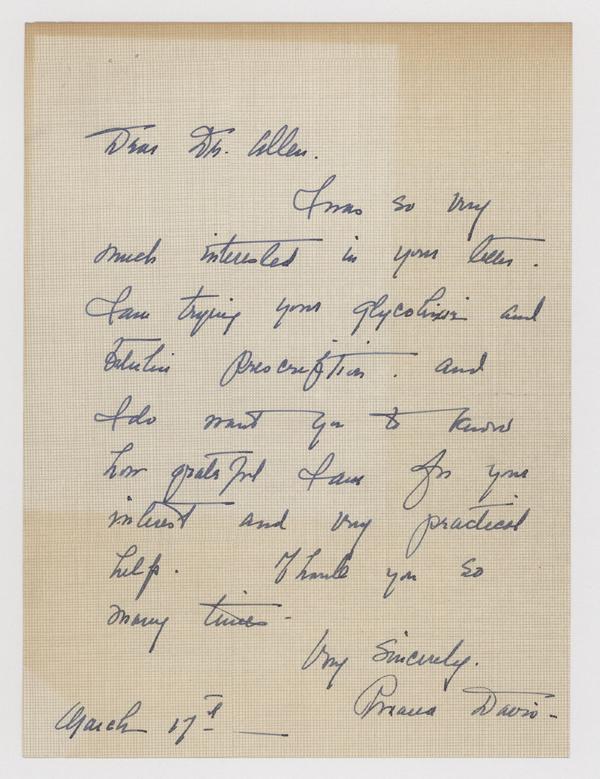 Dear Dr. Allen.
I was so very
much interested in your letter.
I am trying your and
prescription. and
I do want you to know
how grateful I am for your
interest and very practical
help. Thank you so
many times -
Very Sincerely.
Davis -
March 17th